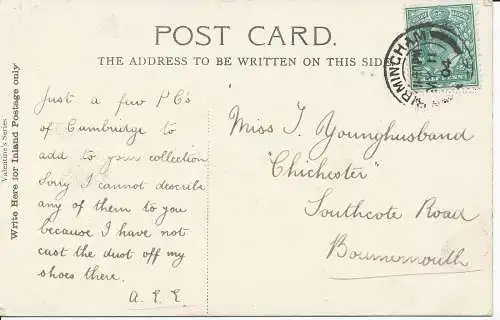 POST CARD.
THE ADDRESS TO BE WRITTEN ON THIS SIDE
Valentine's Series
Write Here for Inland Postage only
Just a few PC's
of Cambridge to
add to your collection
Sorry I cannot describe
any of them to you
because I have not
cast the dust off my
shoes there.
A. E. E.
Miss I. Younghusband
"Chichester"
Southcote Road
Bournemouth
BIRMINGHAM
04